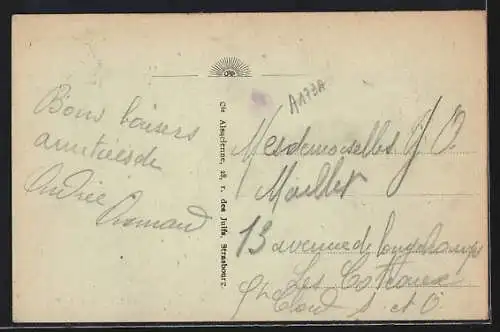 Bons baisers
amitiés de
Andrée
Cie Alsacienne, 28, r. des Juifs, Strasbourg.
A173A
Mesdemoiselles J O
Maillet
13 avenue de Longchamps
Les Coteaux
St Cloud S. et O.